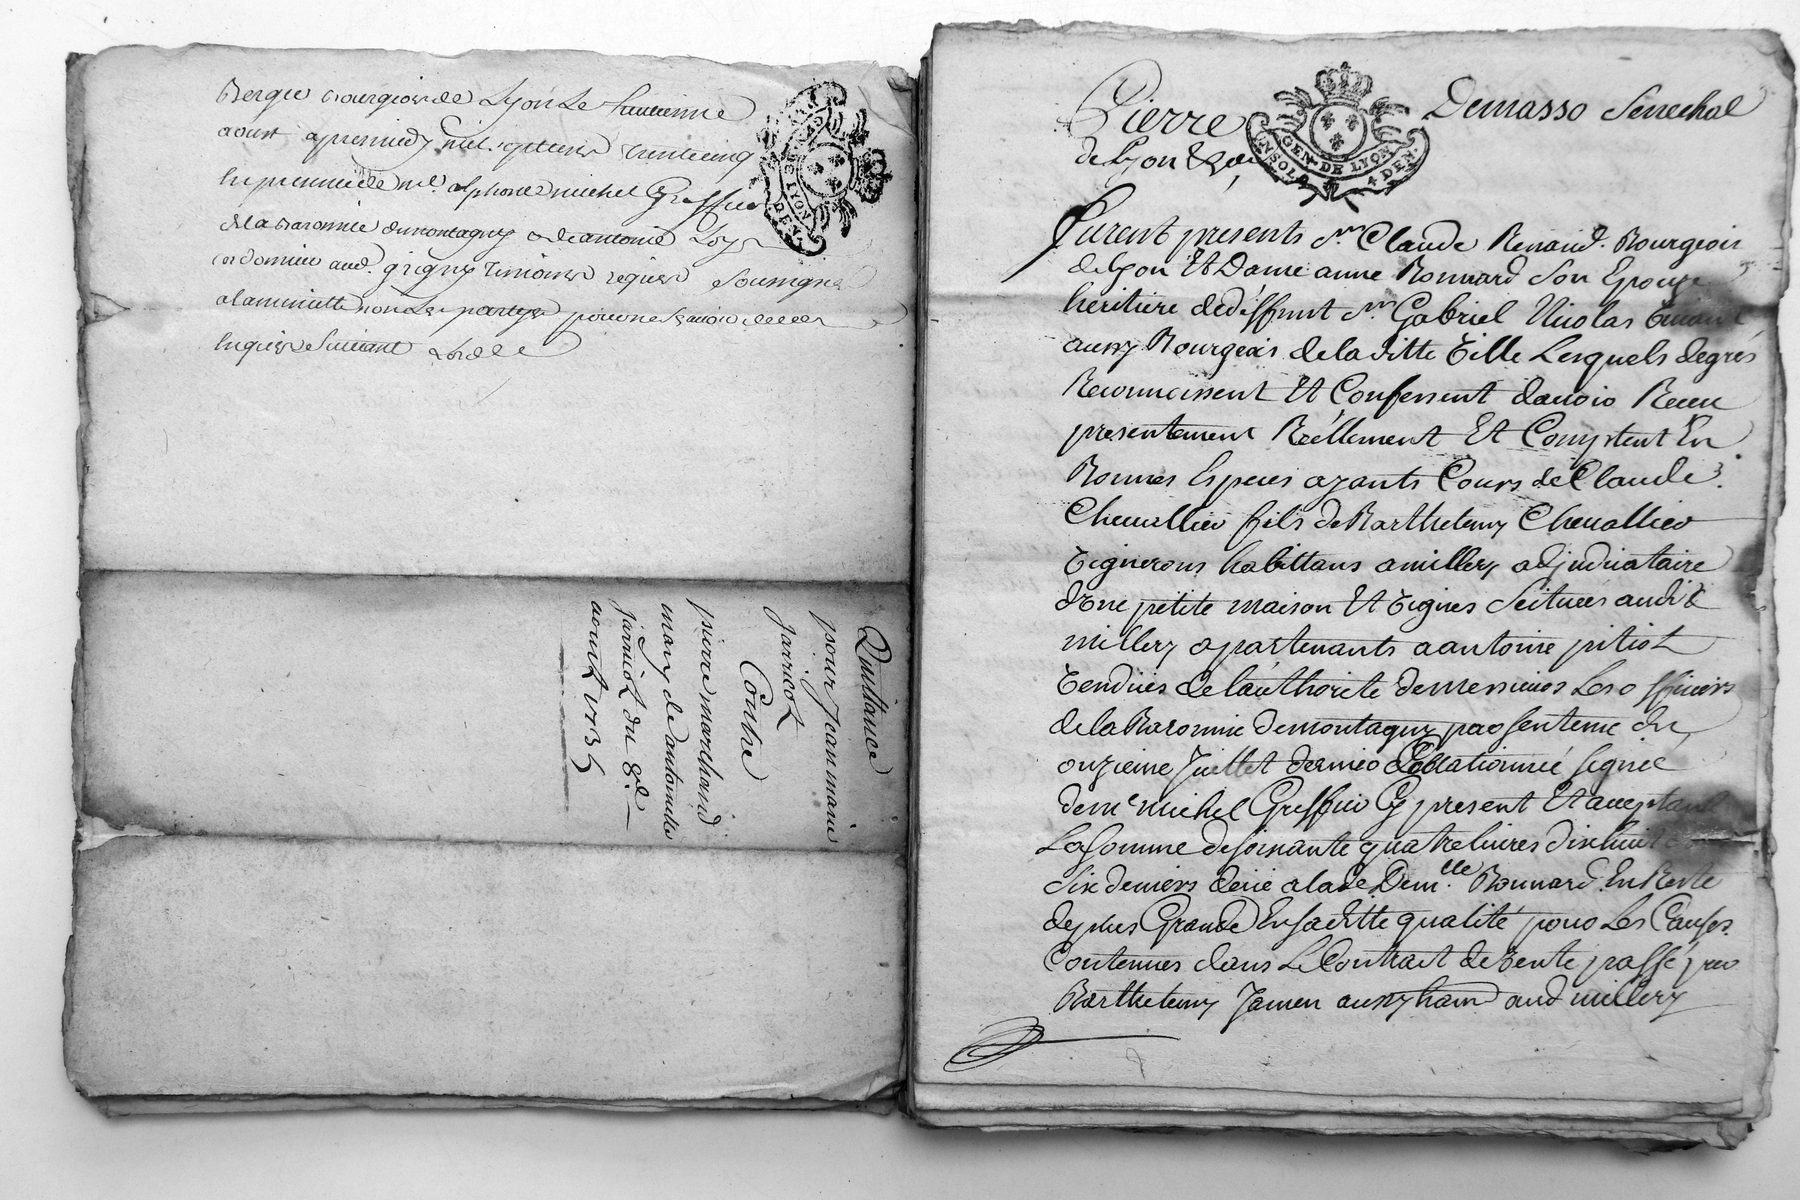 Bergie Bourgeois de Lyon Le huictieme
aoust apresmidy mil sept cens trente cinq
En presence de me. alphonce michel Greffier
de la Baronnie de montagny & de antoine
cordonnier aud. grigny temoins requis Soussignés
a la minutte non Les partyes pour ne sçavoir de ce
Enquises Suivant Lord.ce
GEN. DE LYON
Quittance
pour Jean marie
Jarricot
Contre
pierre marchand
mary de antoinette
Jarricot du 8e.
aoust 1735
Pierre Demasso Senechal
de Lyon &ca
GEN. DE LYON
UN SOL 4 DEN.
Furent presents Sr. Claude Renaud. Bourgeois
de Lyon Et Dame anne Bonnard Son Epouze
heritiere de deffunt Sr. Gabriel Nicolas
aussy Bourgeois de laditte Ville Lesquels de grés
Reconnoissent Et Confessent davoir Receu
presentement Réellement Et Comptent En
Bonnes Especes ayants Cours de Claude
Chevallier fils de Barthelemy Chevallier
Vignerons habittans a millery adjudicataire
d'Une petite maison Et Vignes Scituées audit
millery apartenants a antoine pitiot
Venduës de lauthorité de messieurs Les officiers
de la Baronnie de montagny par sentence du
onzieme Juillet dernier Collationnée signée
de me michel Greffier Cy present Et acceptant
La somme de soixante quatre livres dixhuit
Six deniers deüe a lade Dem.lle Bonnard En Reste
de plus Grande En saditte qualité pour Les Causes
Contenues dans Le Contrait de vente passé par
Barthelemy Jamen aussy hant aud millery